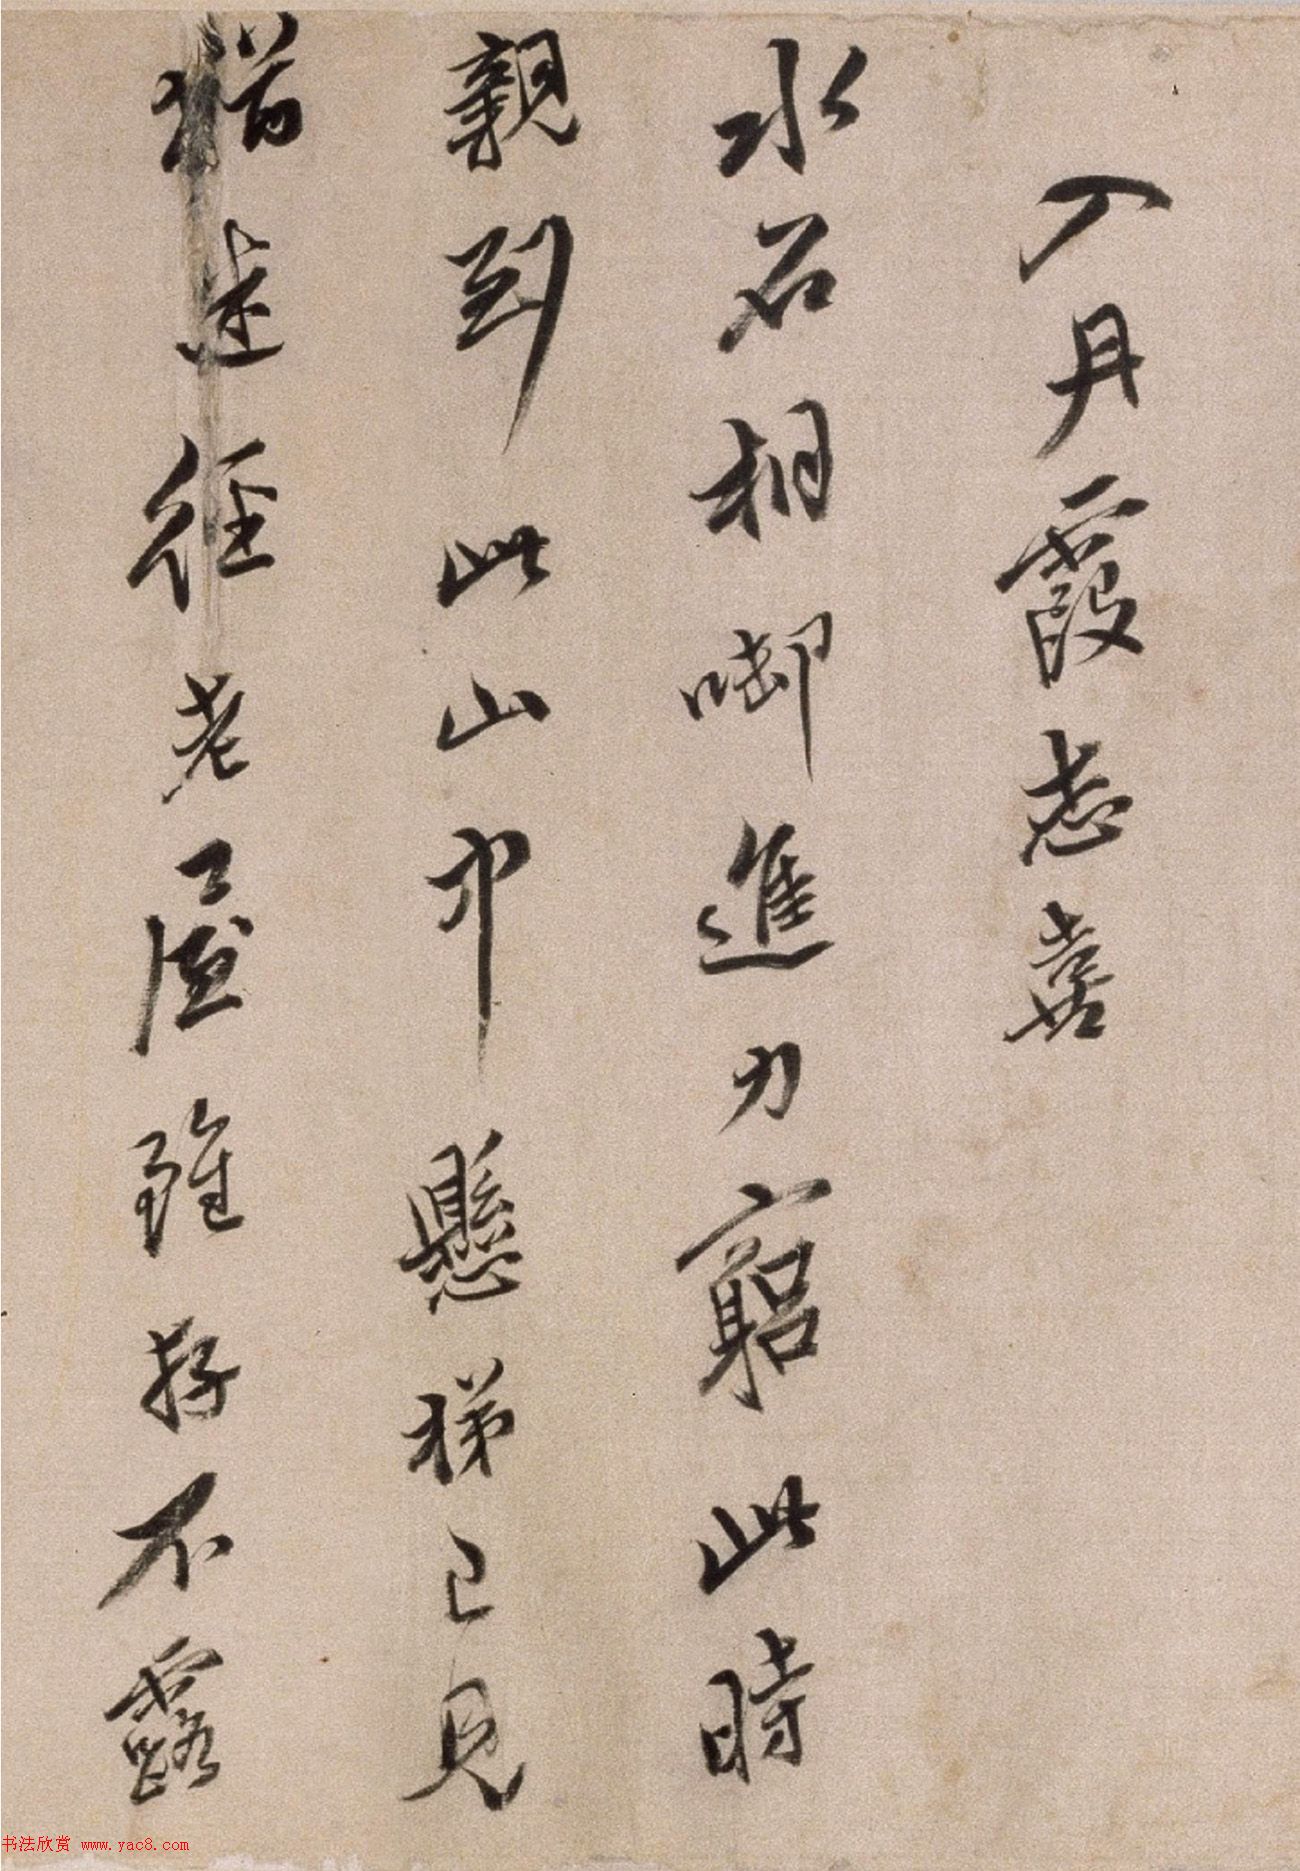 入丹霞志喜
水石相啣進力窮此時
親到此山中懸梯已見
猶迷徑老屋雖存不露
书法欣赏 www.yac8.com